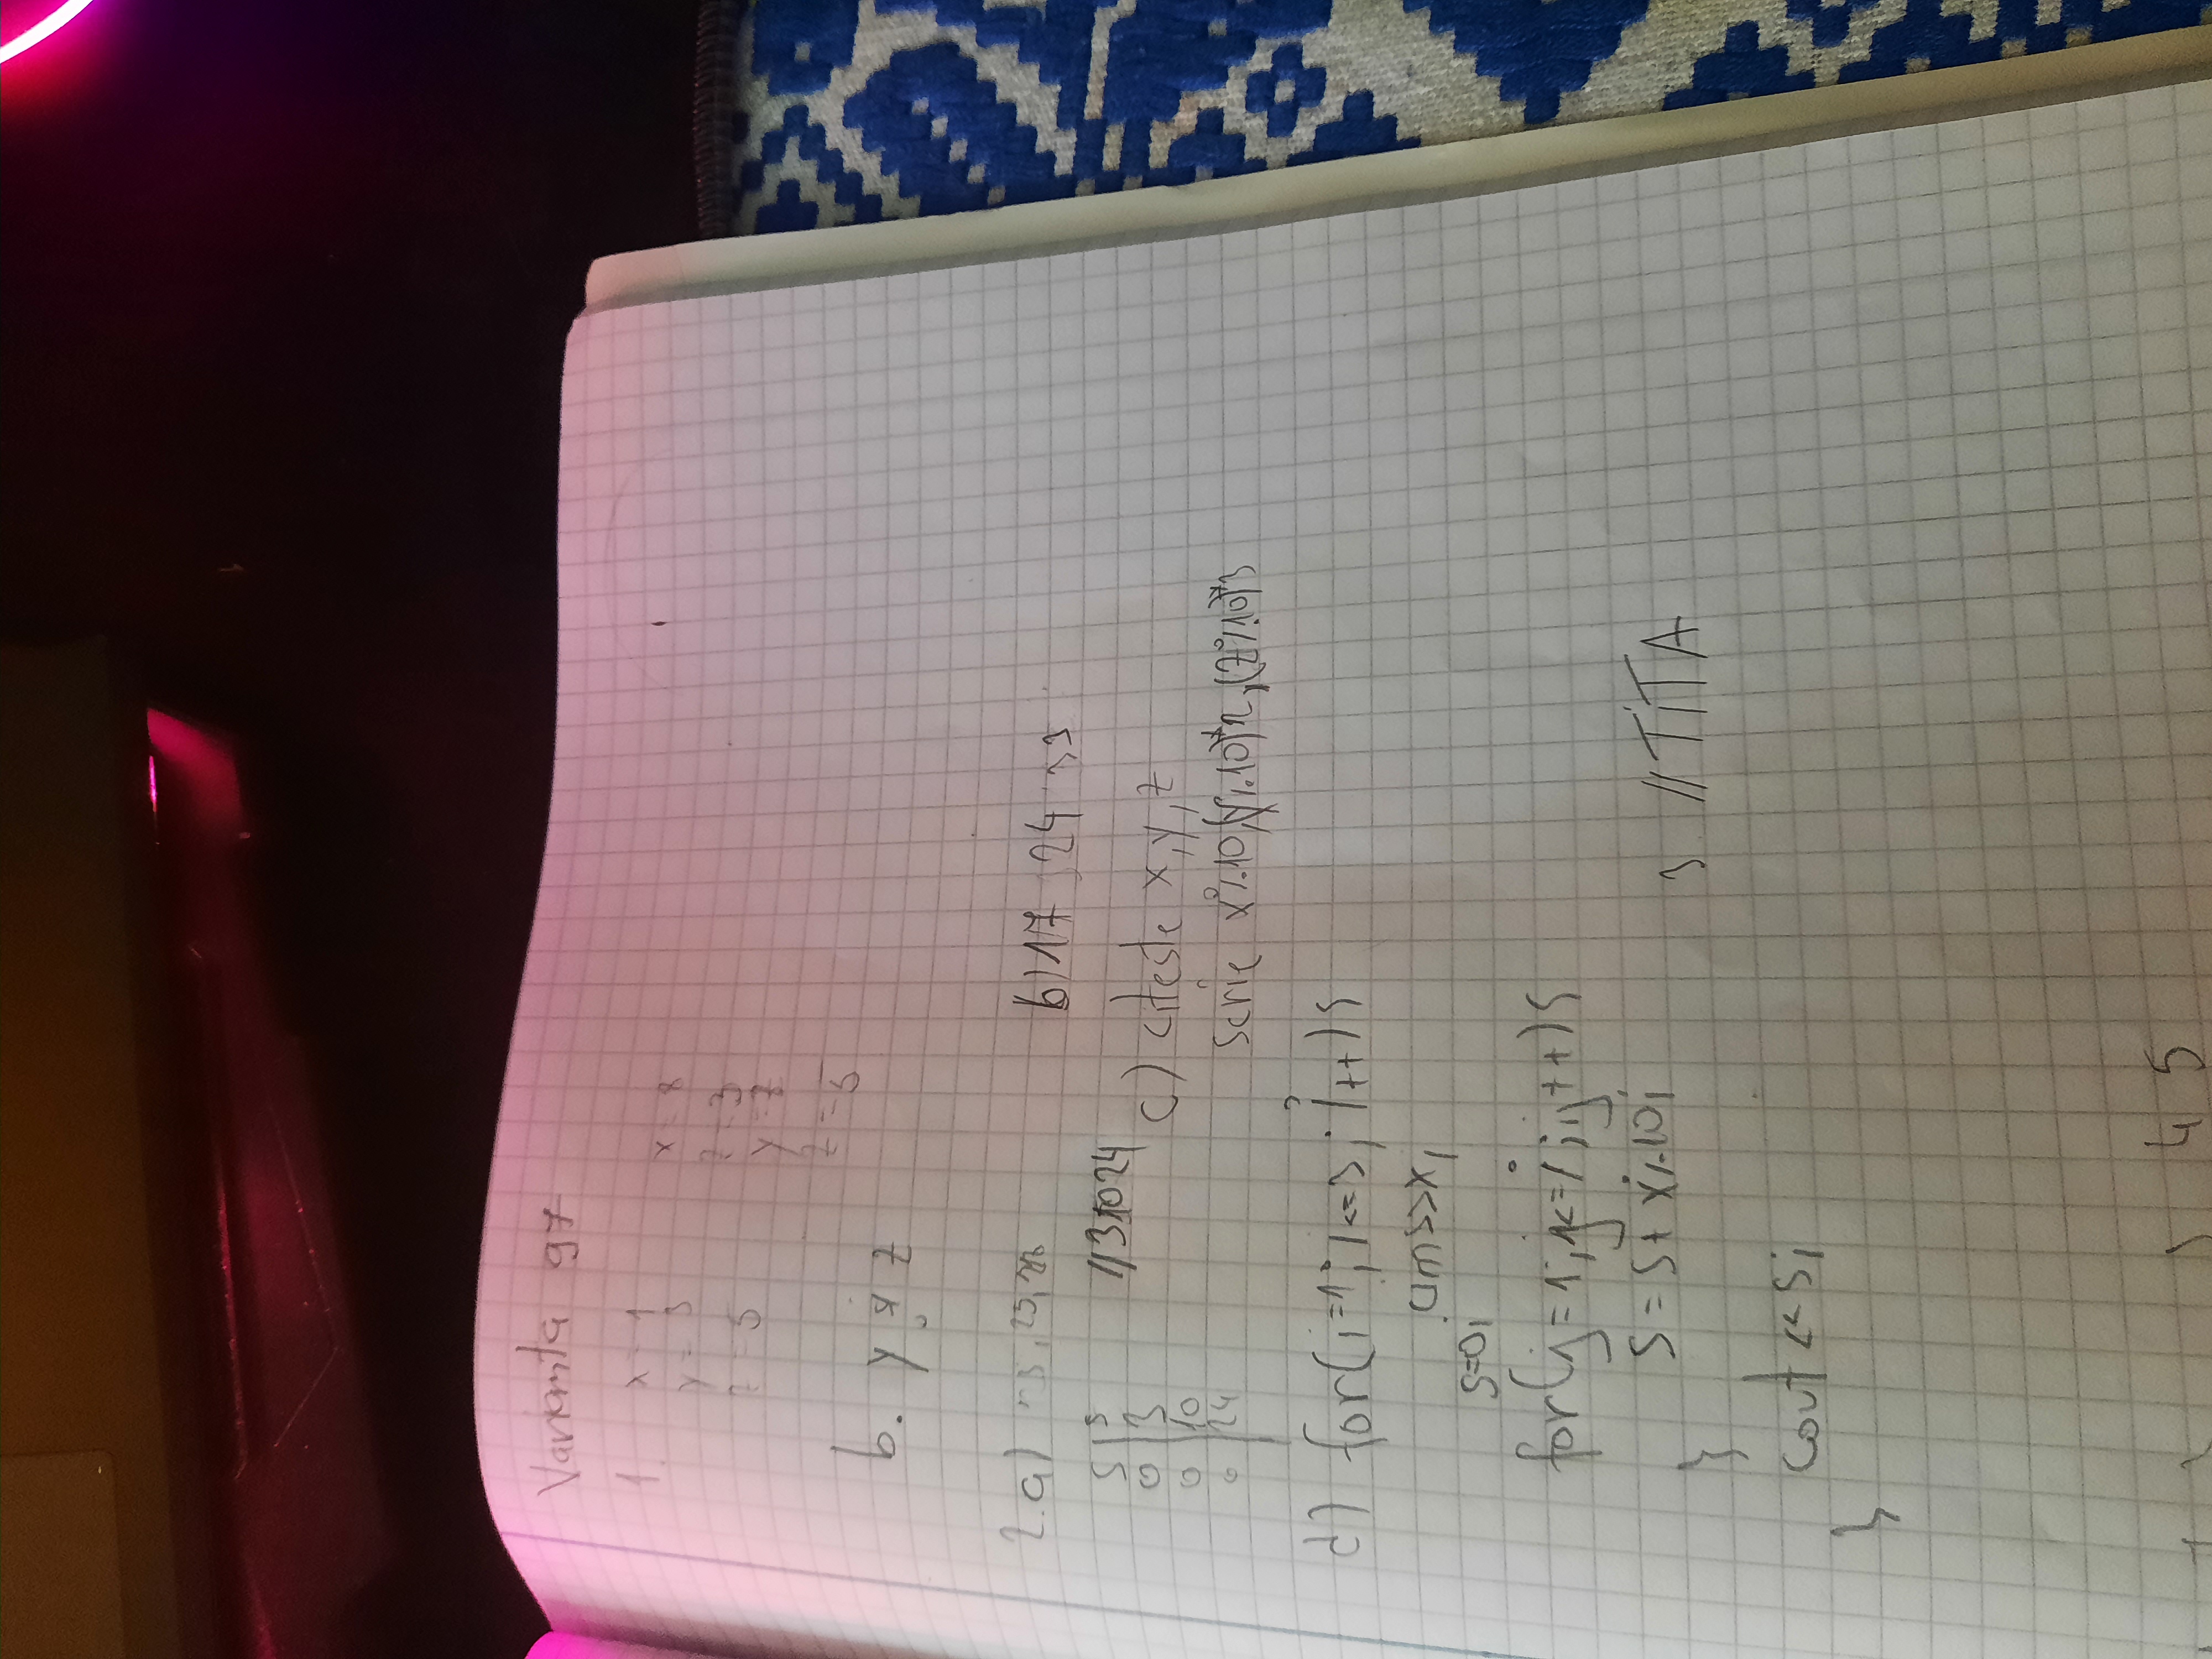 Varianta 97
1. x = 1
y = 3
z = 5
x = 8
z = 3
y = 7
z = 5
b. y și z
2.a) 25,
b) 17, 24, 33
S | s
0 | 3
0 | 10
0 | 24
//31024
c) citeste x,y,z
scrie x%10,(y%.10)*2,(z%10)*3
d) for(i=1;i<=3;i++){
cin>>x;
s=0;
for(j=1;j<=i;j++){
s=s+x%10;
}
cout<<s;
}
3. //TiTA
4 5